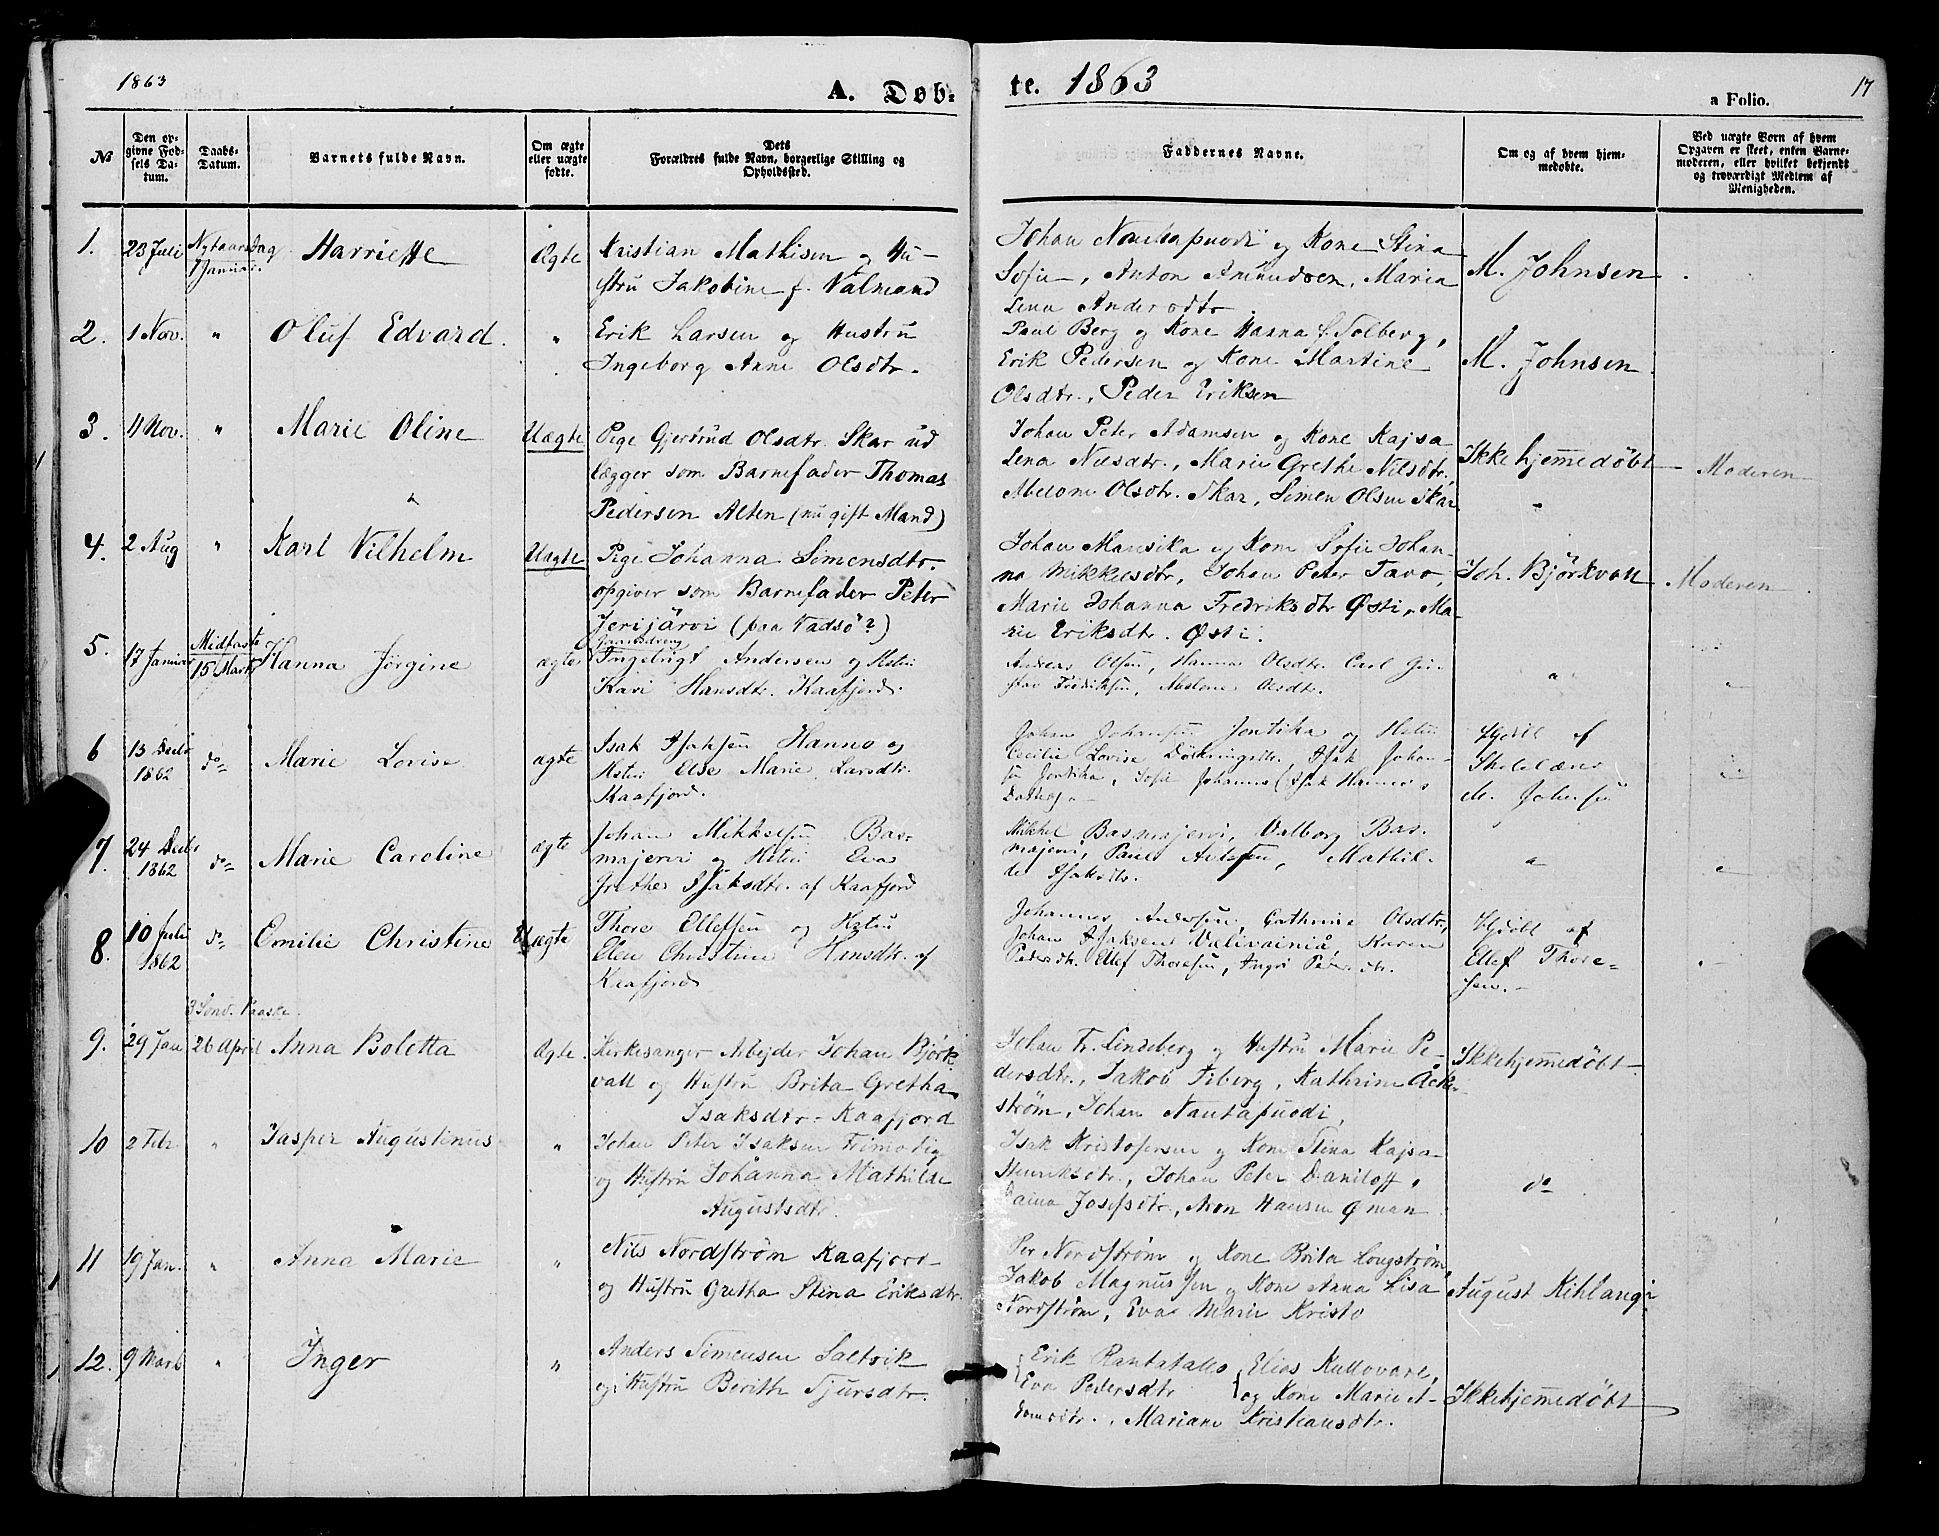 1863
A. Døb-
te. 1863
17
a Folio.
№
Den op-
givne Fød-
sels Da-
tum.
Daabs-
Datum.
Barnets fulde Navn.
Om ægte
eller uægte
fødte.
Dets
Forældres fulde Navn, borgerlige Stilling og
Opholdssted.
Faddernes Navne.
Om og af hvem hjem-
medøbte.
Ved uægte Børn af hvem
Opgaven er skeet, enten Barne-
moderen, eller hvilket bekjendt
og troværdigt Medlem af
Menigheden.
1.
23 Juli
Nytaarsdag
1 Januar.
Harriette
Ægte
Kristian Mathisen og Hu-
stru Jakobine f. Valmand
Johan Nautapuodi og Kone Stina
Sofie, Anton Amundsen, Maria
Lena Andersdtr
M. Johnsen
2.
1 Nov.
"
Oluf Edvard.
"
Erik Larsen og Hustru
Ingeborg Anne Olsdtr.
Paul Berg og Kone Hanna f. Solberg,
Erik Pedersen og Kone Martine
Olsdtr., Peder Eriksen
M. Johnsen
3.
11 Nov.
"
Marie Oline
Uægte
Pige Gjertrud Olsdtr. Skar ud
lægger som Barnefader Thomas
Pedersen Alten (nu gift Mand)
Johan Peter Adamsen og Kone Kajsa
Lena Nilsdtr., Marie Grethe Nilsdtr,
Melone Olsdtr. Skar, Simen Olsen Skar
Ikke hjemmedøbt
Moderen
4.
2 Aug
"
Karl Vilhelm
Uægte
Pige Johanna Simensdtr.
opgiver som Barnefader Peter
Jerijärvi (paa Vadsö?)
Johan Mansika og Kone Sofie Johan-
na Mikkelsdtr, Johan Peter Tavo,
Marie Johanna Fredriksdtr Østi, Ma-
rie Eriksdtr. Østi.
Joh. Björkvatt
Moderen
5.
17 Januar
Midfaste
15 Marts
Hanna Jörgine
ægte
Ingebrigt Andersen og Hstru
Kari Hansdtr. Kaafjord.
Andreas Olsen, Hanna Olsdtr. Carl Gu-
stav Fredriksen, Melone Olsdtr.
"
6
13 Decbr
1862
do
Marie Lovise
ægte
Isak Isaksen Hanno og
Hstru Else Marie Larsdtr.
Kaafjord.
Johan Johansen Jontika og Hstru
Cecilie Lovise , Isak Johan-
sen Jontika, Sofie Johanne (Isak Hannos
Datter).
Hjdøbt af
M. Johnsen
7.
24 Decbr
1862
do
Marie Caroline
ægte
Johan Mikkelsen Bas-
majervi og Hstru Eva
Grethe Isaksdtr. af Kaafjord
Mikkel Basmajervi, Valborg Bas-
majervi, Paul , Mathil-
de Isaksdtr.
"
8.
10 Juli
1862
do
Emilie Christine
Uægte
Thore Ellefsen og Hstru
Elen Christine Hansdtr. af
Kaafjord
Johannes Andersen, Cathrine Olsdtr,
Johan Isaksen Vælivainiä, Karen
Pedersdtr. Ellef Thoresen, Pedersdtr.
Hjdøbt af
Ellef Thore-
sen.
9.
29 Jan
3 Sønd. Paaske.
26 April
Anna Boletta
Ægte.
Kirkesanger Arbejder Johan Björk
vatt og Hustru Brita Gretha
Isaksdtr. Kaafjord
Johan Fr. Lindeberg og Hustru Marie Pe-
dersdtr., Jakob Fiberg, Kathrine Åck-
ström, Johan Nautapuodi,
Ikkehjemmedøbt
10
2 Febr
"
Jasper Augustinus
"
Johan Peter Isaksen Frimodig
og Hustru Johanna Mathilde
Augustsdtr.
Isak Kristofersen og Kone Stina Kajsa
Henriksdtr., Johan Peter Daniloff,
Josefsdtr., Aron Hansen Øman
do
11
19 Jan.
"
Anna Marie
"
Nils Nordstrøm Kaafjord
og Hustru Gretha Stina Eriksdtr.
Per Nordstrøm og Kone Brita Longstrøm,
Jakob Magnussen og Kone Anna Lisa
Nordstrøm, Eva Marie Kristo
August Kihlangi
12.
9 Marts
"
Inger
"
Anders Simensen Saltvik
og Hustru Berith Sjursdtr.
Erik Rantatallo Elias Kullovare,
Eva Pedersdtr og Kone Marie A-
damsdtr., Mariane Kristiansdtr.
Ikkehjemmedøbt